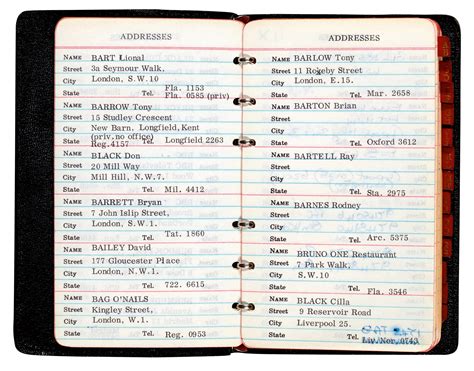 ADDRESSES
NAME BART Lional
Street 3a Seymour Walk,
City London, S.W.10
Fla. 1153
State Tel. Fla. 0585 (priv)
NAME BARROW Tony
Street 15 Studley Crescent
City New Barn. Longfield, Kent
(priv.no office)
State Reg.4157 Tel. Longfield 2263
NAME BLACK Don
Street 20 Mill Way
City Mill Hill, N.W.7.
State Tel. Mil. 4412
NAME BARRETT Bryan
Street 7 John Islip Street,
City London, S.W.1.
State Tel. Tat. 1860
NAME BAILEY David
Street 177 Gloucester Place
City London, N.W.1.
State Tel. 722. 6615
NAME BAG O'NAILS
Street Kingley Street,
City London, W.1.
State Tel. Reg. 0953
ADDRESSES
NAME BARLOW Tony
Street 11 Rokeby Street
City London, E.15.
State Tel. Mar. 2658
NAME BARTON Brian
Street
City
State Tel. Oxford 3612
NAME BARTELL Ray
Street
City
State Tel. Sta. 2975
NAME BARNES Rodney
Street
City
State Tel. Arc. 5375
NAME BRUNO ONE Restaurant
Street 7 Park Walk,
City S.W.10
State Tel. Fla. 3546
NAME BLACK Cilla
Street 9 Reservoir Road
City Liverpool 25.
State Tel. Liv. Nor. 0743